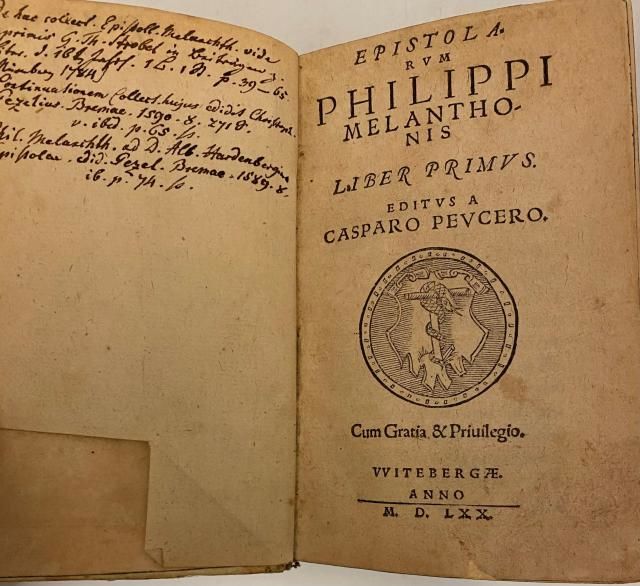 de hac collect. Epistoll. Melanchth. vide
primis G. Th. Strobel in
1784. p. 39-65
Continuationem Collect. hujus edidit Christoph.
Pezelius. Bremae. 1590. 8.
v. ibid. p. 65. ss.
Phil. Melanchth. ad D. Alb. Hardenbergium
epistolae. Edid. Pezel. Bremae. 1589. 8.
ib. p. 74. ss.
EPISTOLA-
RVM
PHILIPPI
MELANTHO-
NIS
LIBER PRIMVS.
EDITVS A
CASPARO PEVCERO.
Cum Gratia & Priuilegio.
VVITEBERGÆ.
ANNO
M. D. LXX.